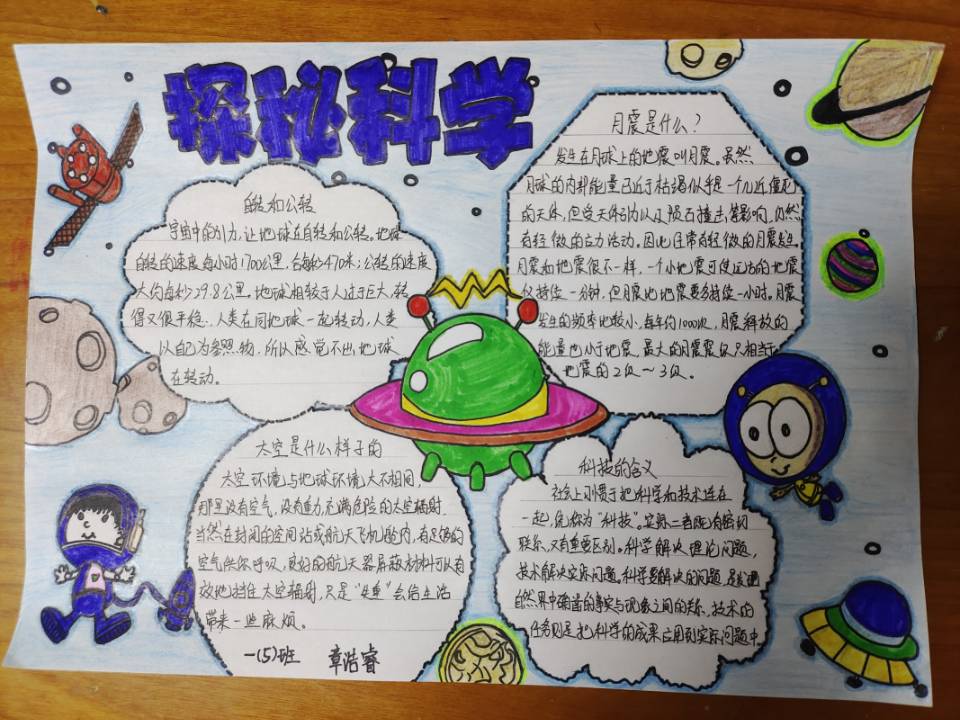 探秘科学
自转和公转
宇宙中能引力，让地球在自转和公转。地球
自转的速度每小时1700公里，合每秒470米；公转的速度
大约每秒29.8公里。地球相较于人过于巨大，转
得又很平稳，人类在同地球一起转动，人类
以自己为参照物，所以感觉不出地球
在转动。
月震是什么？
发生在月球上的地震叫月震。虽然
月球的内部能量已近于枯竭似乎是一个几近僵死
的天体，但受天体引力以及陨石撞击，等影响，仍然
有轻微的应力活动。因此经常有轻微的月震发生
月震和地震很不一样，一个小地震可使远方的地震
仪持续一分钟，但月震比地震要多持续一小时。月震
发生的频率比较小，每年约1000次，月震释放的
能量也小于地震，最大的月震震级只相当于
地震的2级～3级。
太空是什么样子的
太空环境与地球环境大不相同，
那里没有空气，没有重力，充满危险的太空辐射
当然在封闭的空间站或航天飞机船内，有足够的
空气供你呼吸，良好的航天器屏蔽材料可以有
效地挡住太空辐射，只是“失重”会给生活
带来一些麻烦。
一(5)班 章浩睿
科技的含义
社会上习惯于把科学和技术连在
一起，统称为“科技”。实际二者既有密切
联系，又有重要区别。科学解决理论问题，
技术解决实际问题，科学要解决的问题，是发现
自然界中确凿的事实与现象之间的关系，技术的
任务则是把科学的成果应用到实际问题中